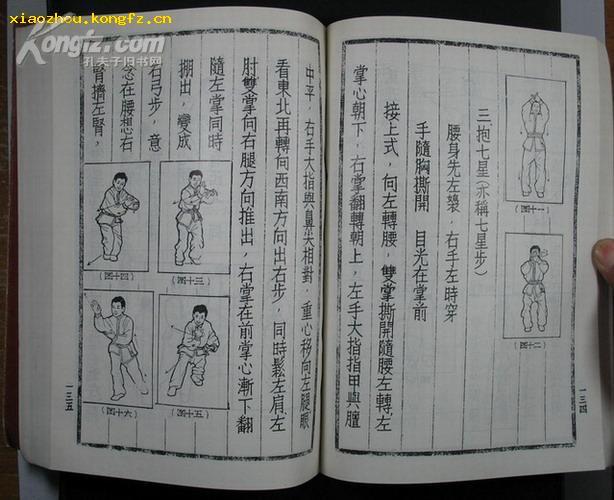 xiaozhou.kongfz.cn
Kongfz.com
孔夫子旧书网
三抱七星(亦稱七星步)
腰身先左襲，右手左時穿
手隨胸撕開 目光在掌前
接上式，向左轉腰，雙掌撕開隨腰左轉，左
掌心朝下，右掌翻轉朝上，左手大指指甲與膻
(圖十一)
(圖十二)
一三四
中平，右手大指與鼻尖相對，重心移向左腿，眼
看東北再轉向西南方向出右步，同時鬆左肩、左
肘，雙掌向右腿方向推出，右掌在前掌心漸下翻
隨左掌同時
掤出，變成
右弓步，意
念在腰想右
腎擠左腎，
(圖十三)
(圖十四)
(圖十五)
(圖十六)
一三五